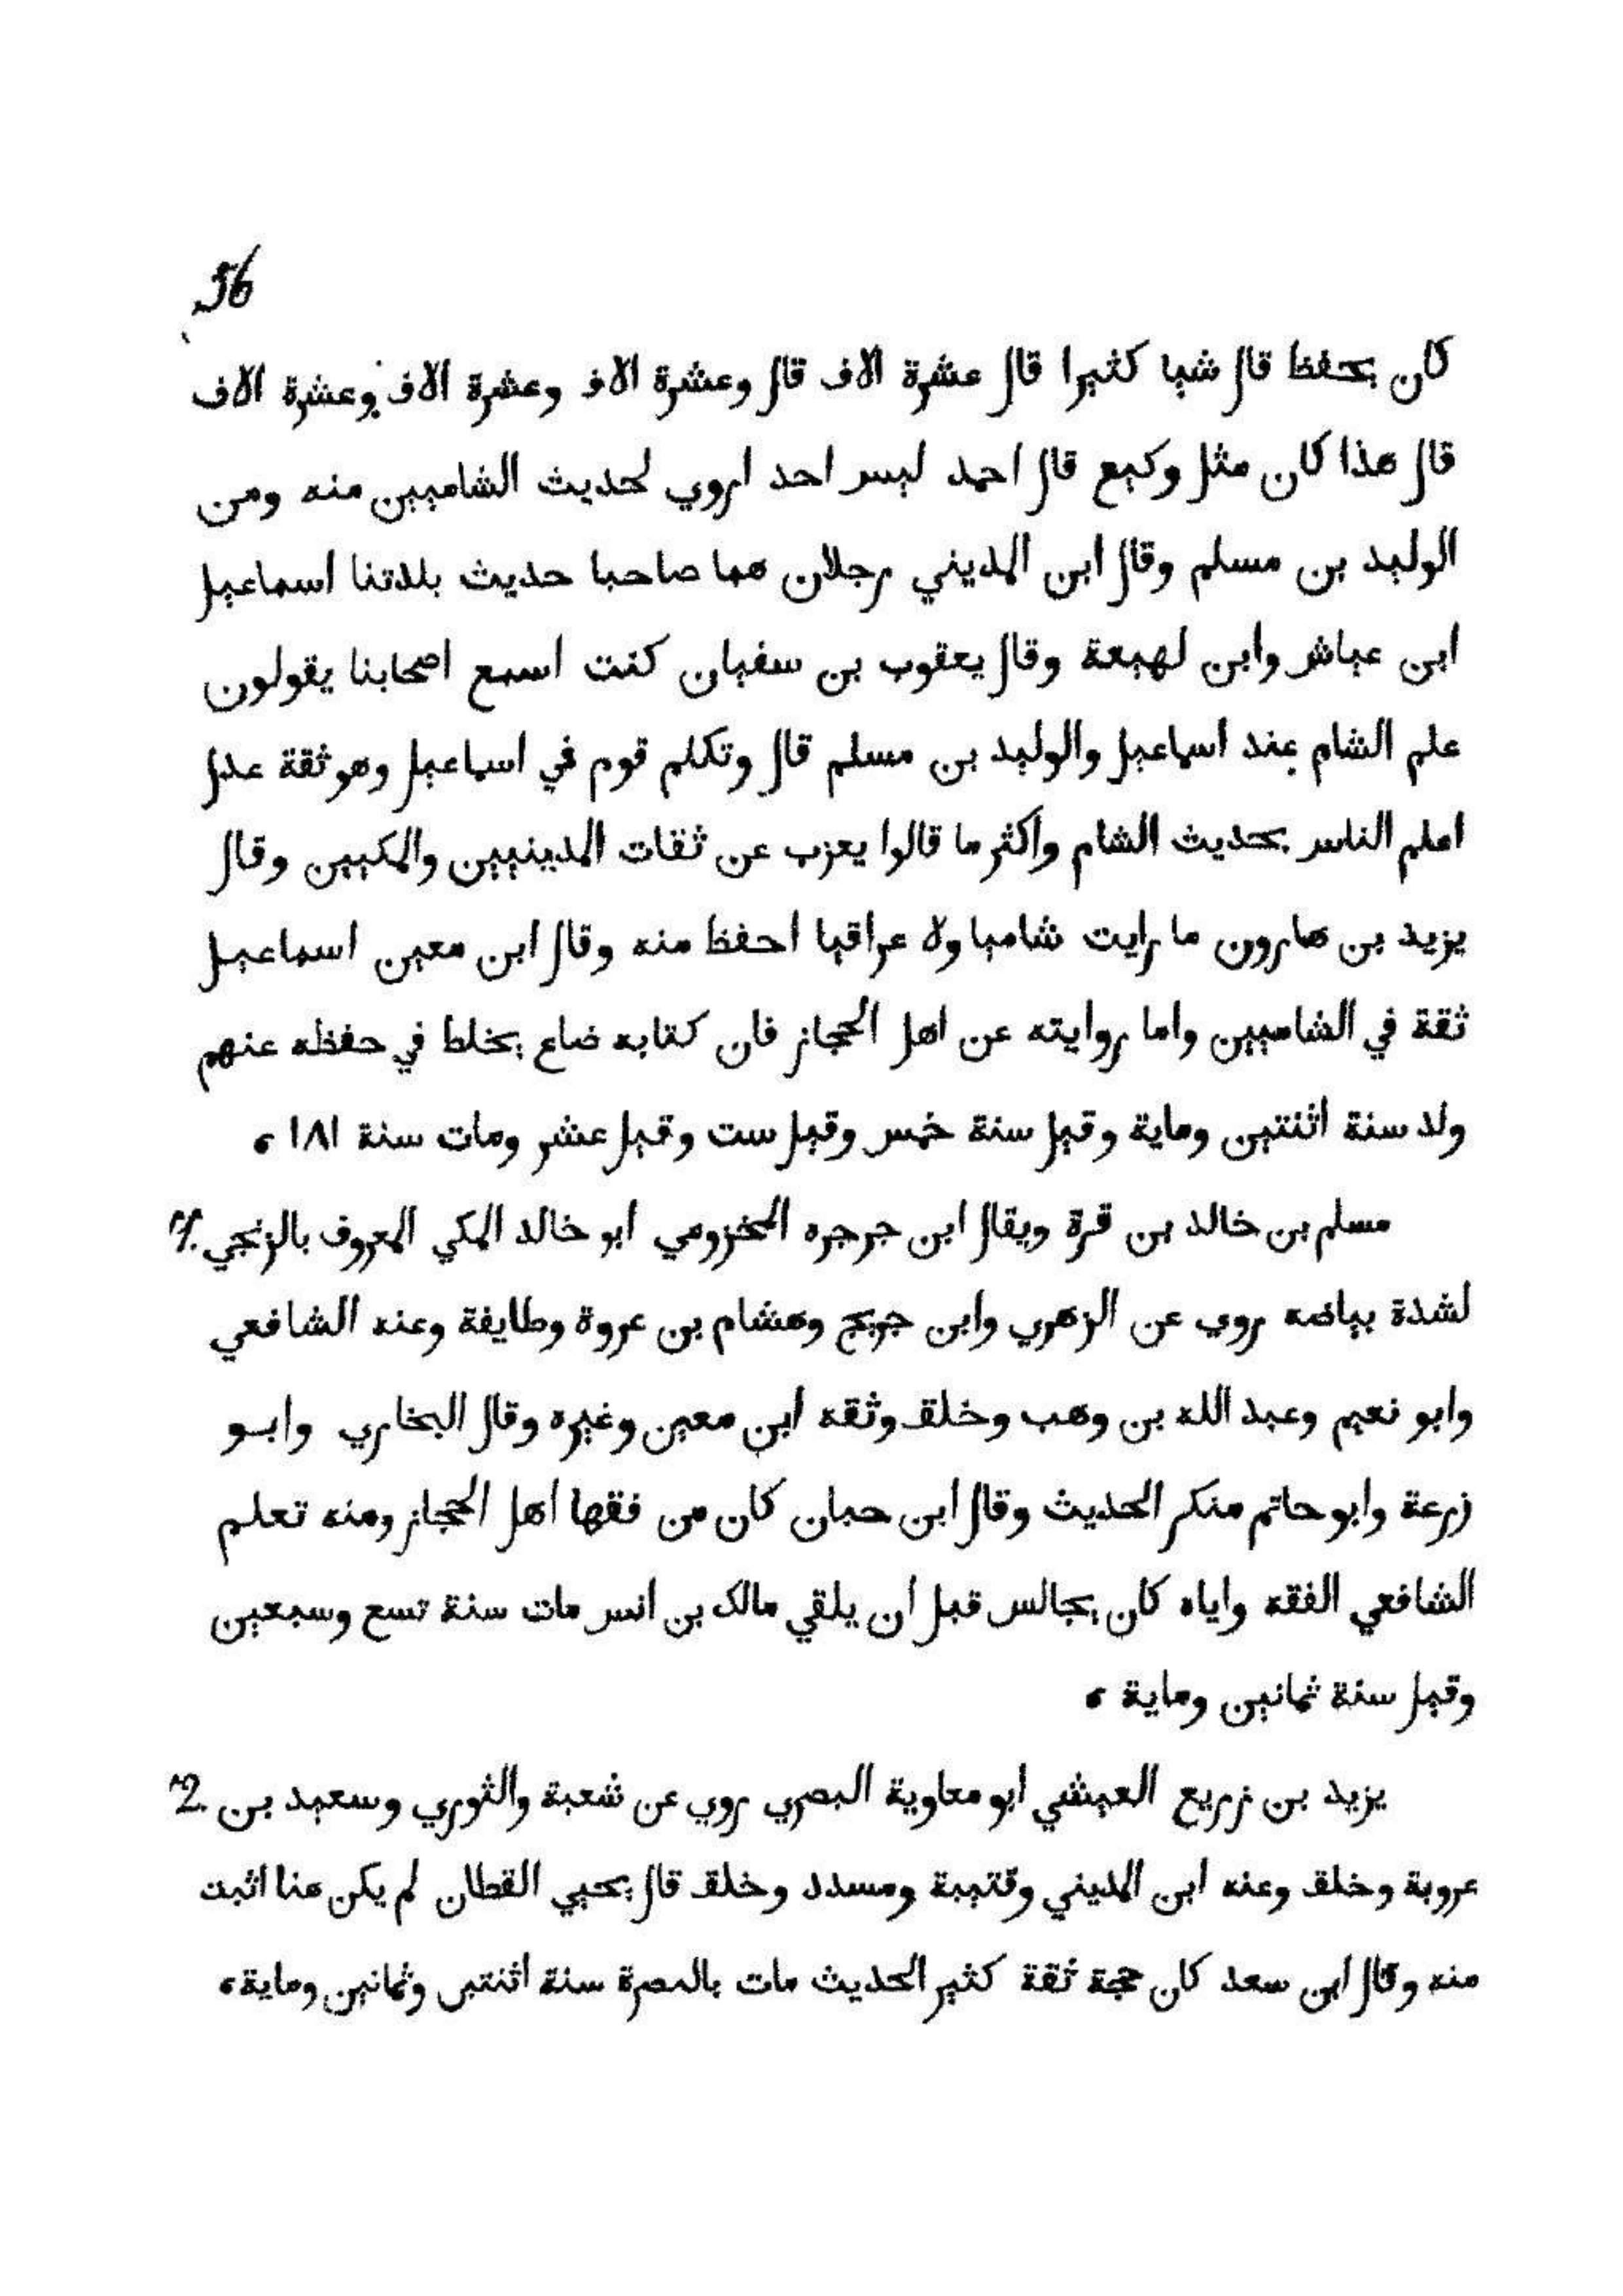 56
كان يحفظ قال شيا كثيرا قال عشرة الاف قال وعشرة الاف وعشرة الاف وعشرة الاف
قال هذا كان مثل وكيع قال احمد ليس احد اروي لحديث الشاميين منه ومن
الوليد بن مسلم وقال ابن المديني رجلان هما صاحبا حديث بلدتنا اسماعيل
ابن عياش وابن لهيعة وقال يعقوب بن سفيان كنت اسمع اصحابنا يقولون
علم الشام عند اسماعيل والوليد بن مسلم قال وتكلم قوم في اسماعيل وهو ثقة عدل
اعلم الناس بحديث الشام واكثر ما قالوا يعزب عن ثقات المدينيين والمكيين وقال
يزيد بن هارون ما رايت شاميا ولا عراقيا احفظ منه وقال ابن معين اسماعيل
ثقة في الشاميين واما روايته عن اهل الحجاز فان كتابه ضاع يخلط في حفظه عنهم
ولد سنة اثنتين وماية وقيل سنة خمس وقيل ست وقيل عشر ومات سنة ١٨١ ه
مسلم بن خالد بن قرة ويقال ابن جرجره المخزومي ابو خالد المكي المعروف بالزنجي
لشدة بياضه روي عن الزهري وابن جريج وهشام بن عروة وطايفة وعنه الشافعي
وابو نعيم وعبد الله بن وهب وخلق وثقه ابن معين وغيره وقال البخاري وابو
زرعة وابو حاتم منكر الحديث وقال ابن حبان كان من فقها اهل الحجاز ومنه تعلم
الشافعي الفقه واياه كان يجالس قبل ان يلقي مالك بن انس مات سنة تسع وسبعين
وقيل سنة ثمانين وماية ه
يزيد بن زريع العيشي ابو معاوية البصري روي عن شعبة والثوري وسعيد بن 2.
عروبة وخلق وعنه ابن المديني وقتيبة ومسدد وخلق قال يحيي القطان لم يكن هنا اثبت
منه وقال ابن سعد كان حجة ثقة كثير الحديث مات بالبصرة سنة اثنتين وثمانين وماية ه